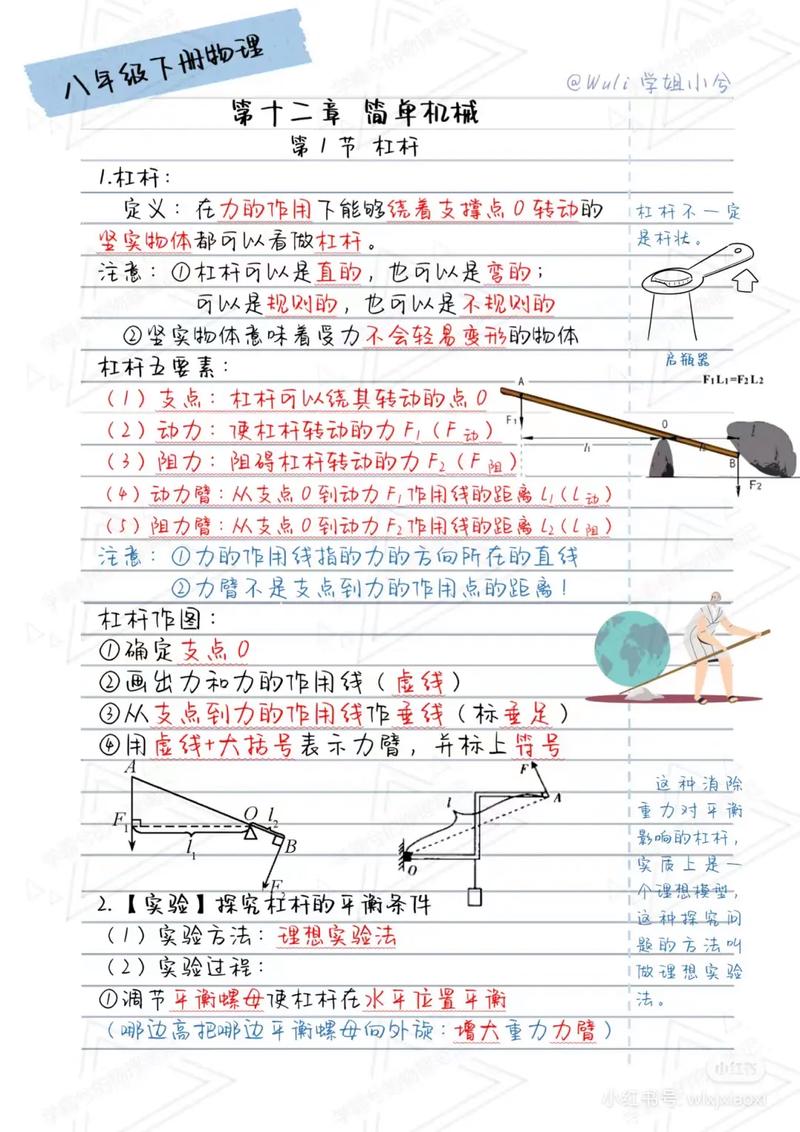 八年级下册物理
@Wuli 学姐小兮
第十二章 简单机械
第1节 杠杆
1.杠杆：
定义：在力的作用下能够绕着支撑点O转动的
坚实物体都可以看做杠杆。
注意：①杠杆可以是直的，也可以是弯的；
可以是规则的，也可以是不规则的
②坚实物体意味着受力不会轻易变形的物体
杠杆不一定
是杆状。
启瓶器
杠杆五要素：
（1）支点：杠杆可以绕其转动的点O
（2）动力：使杠杆转动的力F₁（F动）
（3）阻力：阻碍杠杆转动的力F₂（F阻）
（4）动力臂：从支点O到动力F₁作用线的距离L₁（L动）
（5）阻力臂：从支点O到动力F₂作用线的距离L₂（L阻）
F₁L₁=F₂L₂
A
F₁
O
l
l₁
l₂
B
F₂
注意：①力的作用线指的力的方向所在的直线
②力臂不是支点到力的作用点的距离！
杠杆作图：
①确定支点O
②画出力和力的作用线（虚线）
③从支点到力的作用线作垂线（标垂足）
④用虚线+大括号表示力臂，并标上符号
A
F₁
O
l₂
l₁
B
F₂
F
A
l
O
这种消除
重力对平衡
影响的杠杆，
实质上是一
个理想模型，
这种探究问
题的方法叫
做理想实验
法。
2.【实验】探究杠杆的平衡条件
（1）实验方法：理想实验法
（2）实验过程：
①调节平衡螺母使杠杆在水平位置平衡
（哪边高把哪边平衡螺母向外旋：增大重力力臂）
小红书
小红书号: wlxjxiaoxi